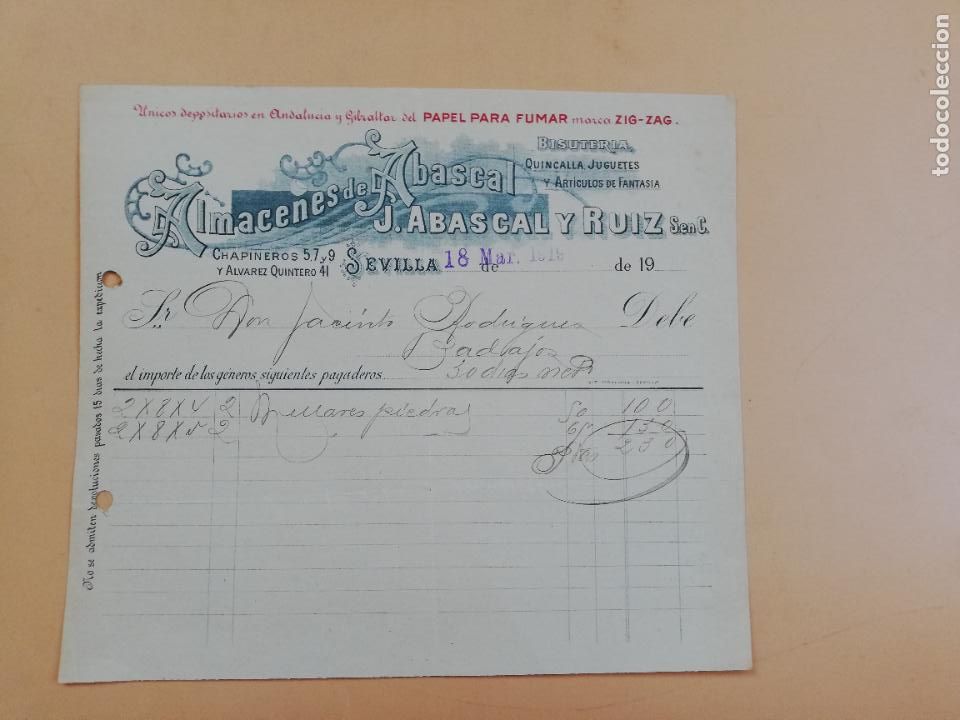 Unicos deppsitarios en Andalucia y Gibraltar del PAPEL PARA FUMAR marca ZIG-ZAG.
Almacenes de Abascal
BISUTERIA,
QUINCALLA, JUGUETES
Y ARTÍCULOS DE FANTASIA
J. ABASCAL Y RUIZ S.enC.
CHAPINEROS 5,7 y 9
Y ALVAREZ QUINTERO 41
SEVILLA 18 Mar. 1919 de de 19
Sr. Don Jacinto Rodriguez Debe
Badajoz
el importe de los géneros siguientes pagaderos 30 dias neto
2X8X4 2 Millares piedras 50 100
2X8X5 2 65 130
Ptas 230
No se admiten devoluciones pasados 15 dias de hecha la expedicion
todocoleccion